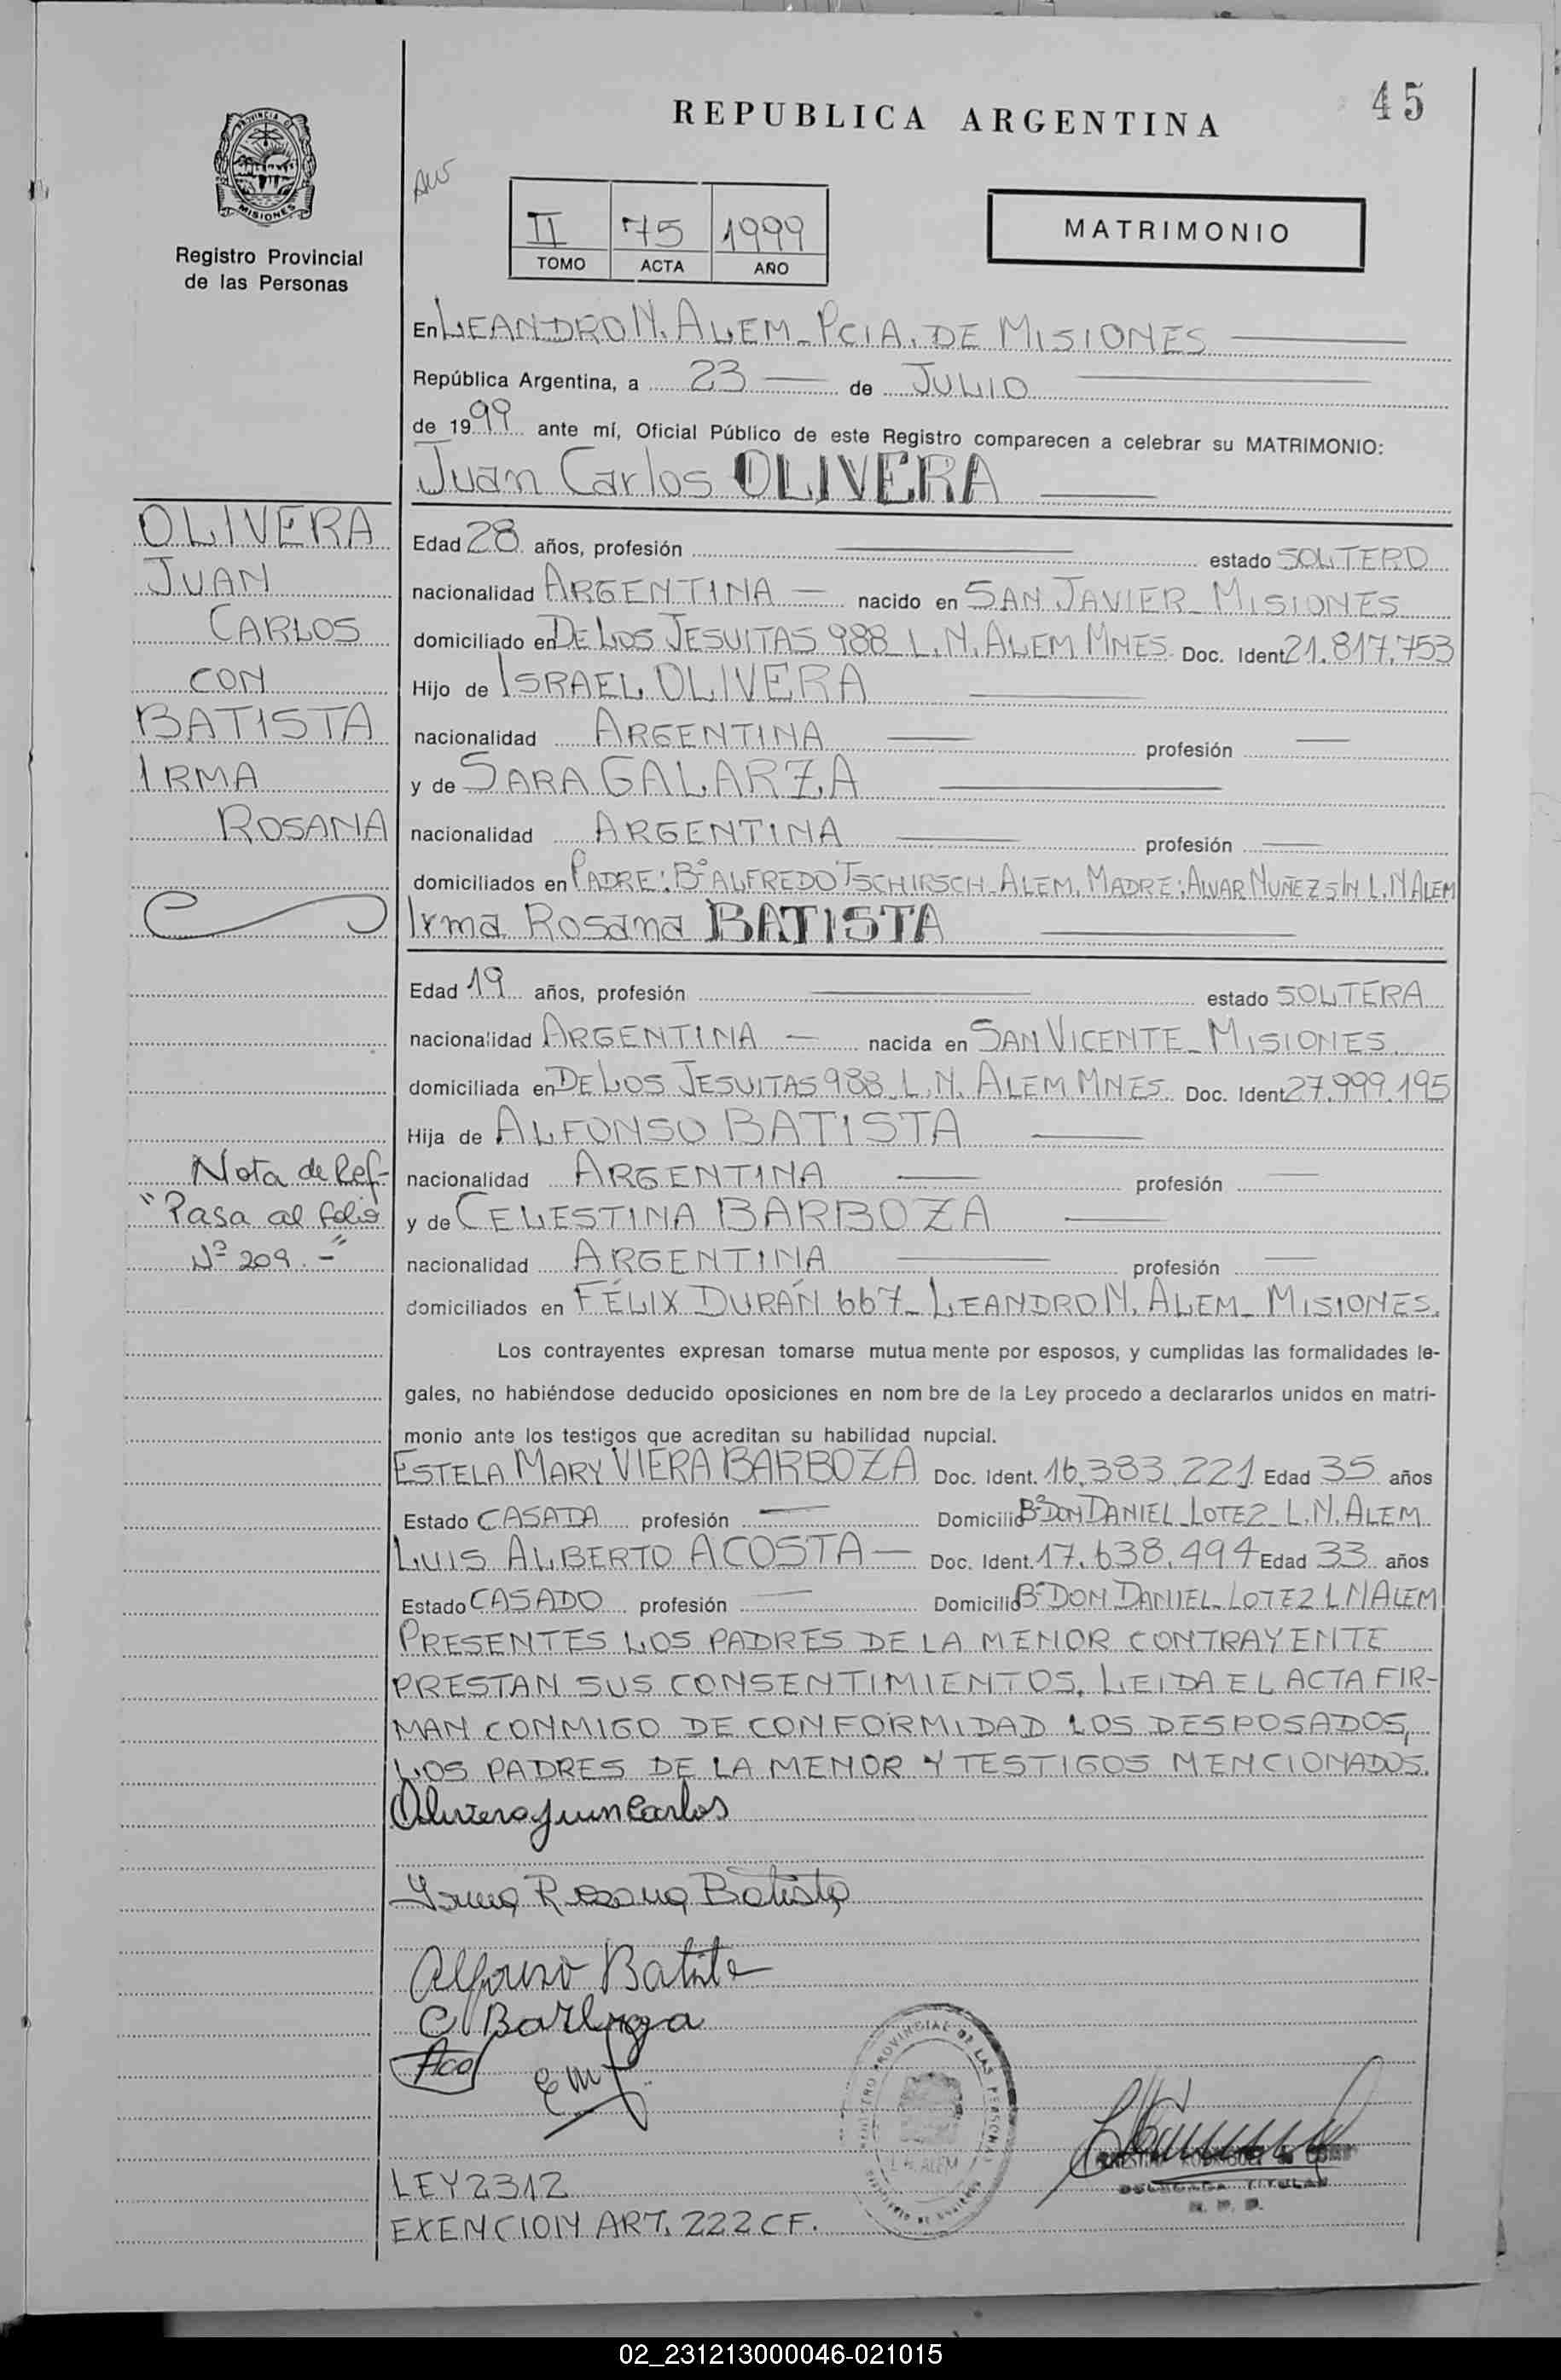 45
REPUBLICA ARGENTINA
PROVINCIA D
MISIONES
Registro Provincial
de las Personas
II 75 1999
TOMO ACTA AÑO
MATRIMONIO
En LEANDRO N. ALEM - PCIA. DE MISIONES
República Argentina, a 23 de JULIO
de 1999 ante mí, Oficial Público de este Registro comparecen a celebrar su MATRIMONIO:
Juan Carlos OLIVERA
OLIVERA
JUAN
CARLOS
CON
BATISTA
IRMA
ROSANA
Edad 28 años, profesión estado SOLTERO
nacionalidad ARGENTINA - nacido en SAN JAVIER - MISIONES
domiciliado en DE LOS JESUITAS 988 L.N. ALEM MNES. Doc. Ident. 21.817.753
Hijo de ISRAEL OLIVERA
nacionalidad ARGENTINA profesión
y de SARA GALARZA
nacionalidad ARGENTINA profesión
domiciliados en PADRE: Bº ALFREDO TSCHIRSCH - ALEM. MADRE: ALVAR NUÑEZ S/N L.N ALEM
Irma Rosana BATISTA
Edad 19 años, profesión estado SOLTERA
nacionalidad ARGENTINA - nacida en SAN VICENTE - MISIONES
domiciliada en DE LOS JESUITAS 988 L.N. ALEM MNES. Doc. Ident. 27.999.195
Hija de ALFONSO BATISTA
nacionalidad ARGENTINA profesión
y de CELESTINA BARBOZA
nacionalidad ARGENTINA profesión
domiciliados en FÉLIX DURÁN 667 - LEANDRO N. ALEM - MISIONES.
Nota de Ref-
"Pasa al folio
Nº 209.-"
Los contrayentes expresan tomarse mutua mente por esposos, y cumplidas las formalidades le-
gales, no habiéndose deducido oposiciones en nom bre de la Ley procedo a declararlos unidos en matri-
monio ante los testigos que acreditan su habilidad nupcial.
ESTELA MARY VIERA BARBOZA Doc. Ident. 16.383.221 Edad 35 años
Estado CASADA profesión Domicilio Bº DON DANIEL - LOTE 2 - L.N. ALEM
LUIS ALBERTO ACOSTA - Doc. Ident. 17.638.494 Edad 33 años
Estado CASADO profesión Domicilio Bº DON DANIEL - LOTE 2 L N ALEM
PRESENTES LOS PADRES DE LA MENOR CONTRAYENTE
PRESTAN SUS CONSENTIMIENTOS. LEIDA EL ACTA FIR-
MAN CONMIGO DE CONFORMIDAD LOS DESPOSADOS,
LOS PADRES DE LA MENOR Y TESTIGOS MENCIONADOS.
Olivera Juan Carlos
Irma Rosana Batista
Alfonso Batista
C Barboza
REGISTRO PROVINCIAL DE LAS PERSONAS
L.N. ALEM
DELEGADA TITULAR
LEY 2312
EXENCION ART. 222 CF.
02_231213000046-021015